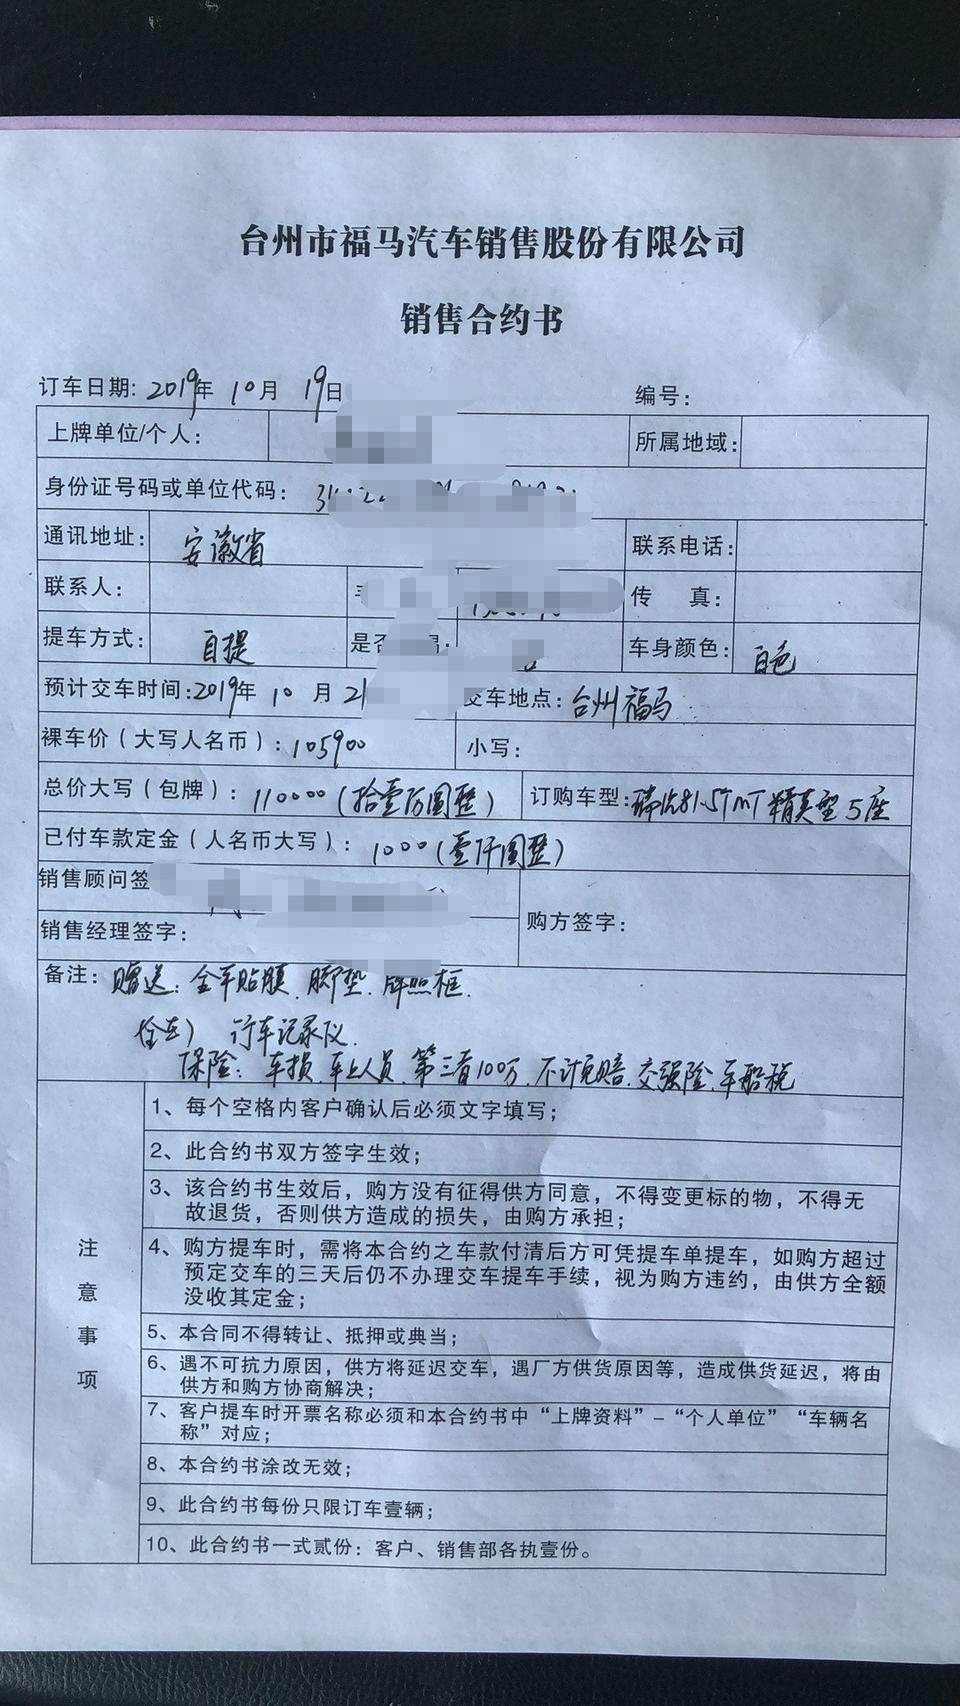 台州市福马汽车销售股份有限公司
销售合约书
订车日期: 2019年 10月 19日 编号:
上牌单位/个人: 所属地域:
身份证号码或单位代码:
通讯地址: 安徽省 联系电话:
联系人: 传 真:
提车方式: 自提 是否 车身颜色: 白色
预计交车时间:2019年 10月 21 交车地点: 台州福马
裸车价(大写人名币): 105900 小写:
总价大写(包牌): 110000(拾壹万圆整) 订购车型: 1.5T MT 精英型 5座
已付车款定金(人名币大写): 1000(壹仟圆整)
销售顾问签
销售经理签字: 购方签字:
备注: 赠送: 全车贴膜、脚垫、牌照框、
行车记录仪.
保险: 车损、车上人员、第三者100万、不计免赔、交强险、车船税
注意事项
1、每个空格内客户确认后必须文字填写;
2、此合约书双方签字生效;
3、该合约书生效后，购方没有征得供方同意，不得变更标的物，不得无
故退货，否则供方造成的损失，由购方承担;
4、购方提车时，需将本合约之车款付清后方可凭提车单提车，如购方超过
预定交车的三天后仍不办理交车提车手续，视为购方违约，由供方全额
没收其定金;
5、本合同不得转让、抵押或典当;
6、遇不可抗力原因，供方将延迟交车，遇厂方供货原因等，造成供货延迟，将由
供方和购方协商解决;
7、客户提车时开票名称必须和本合约书中“上牌资料”–“个人单位”“车辆名
称”对应;
8、本合约书涂改无效;
9、此合约书每份只限订车壹辆;
10、此合约书一式贰份: 客户、销售部各执壹份。